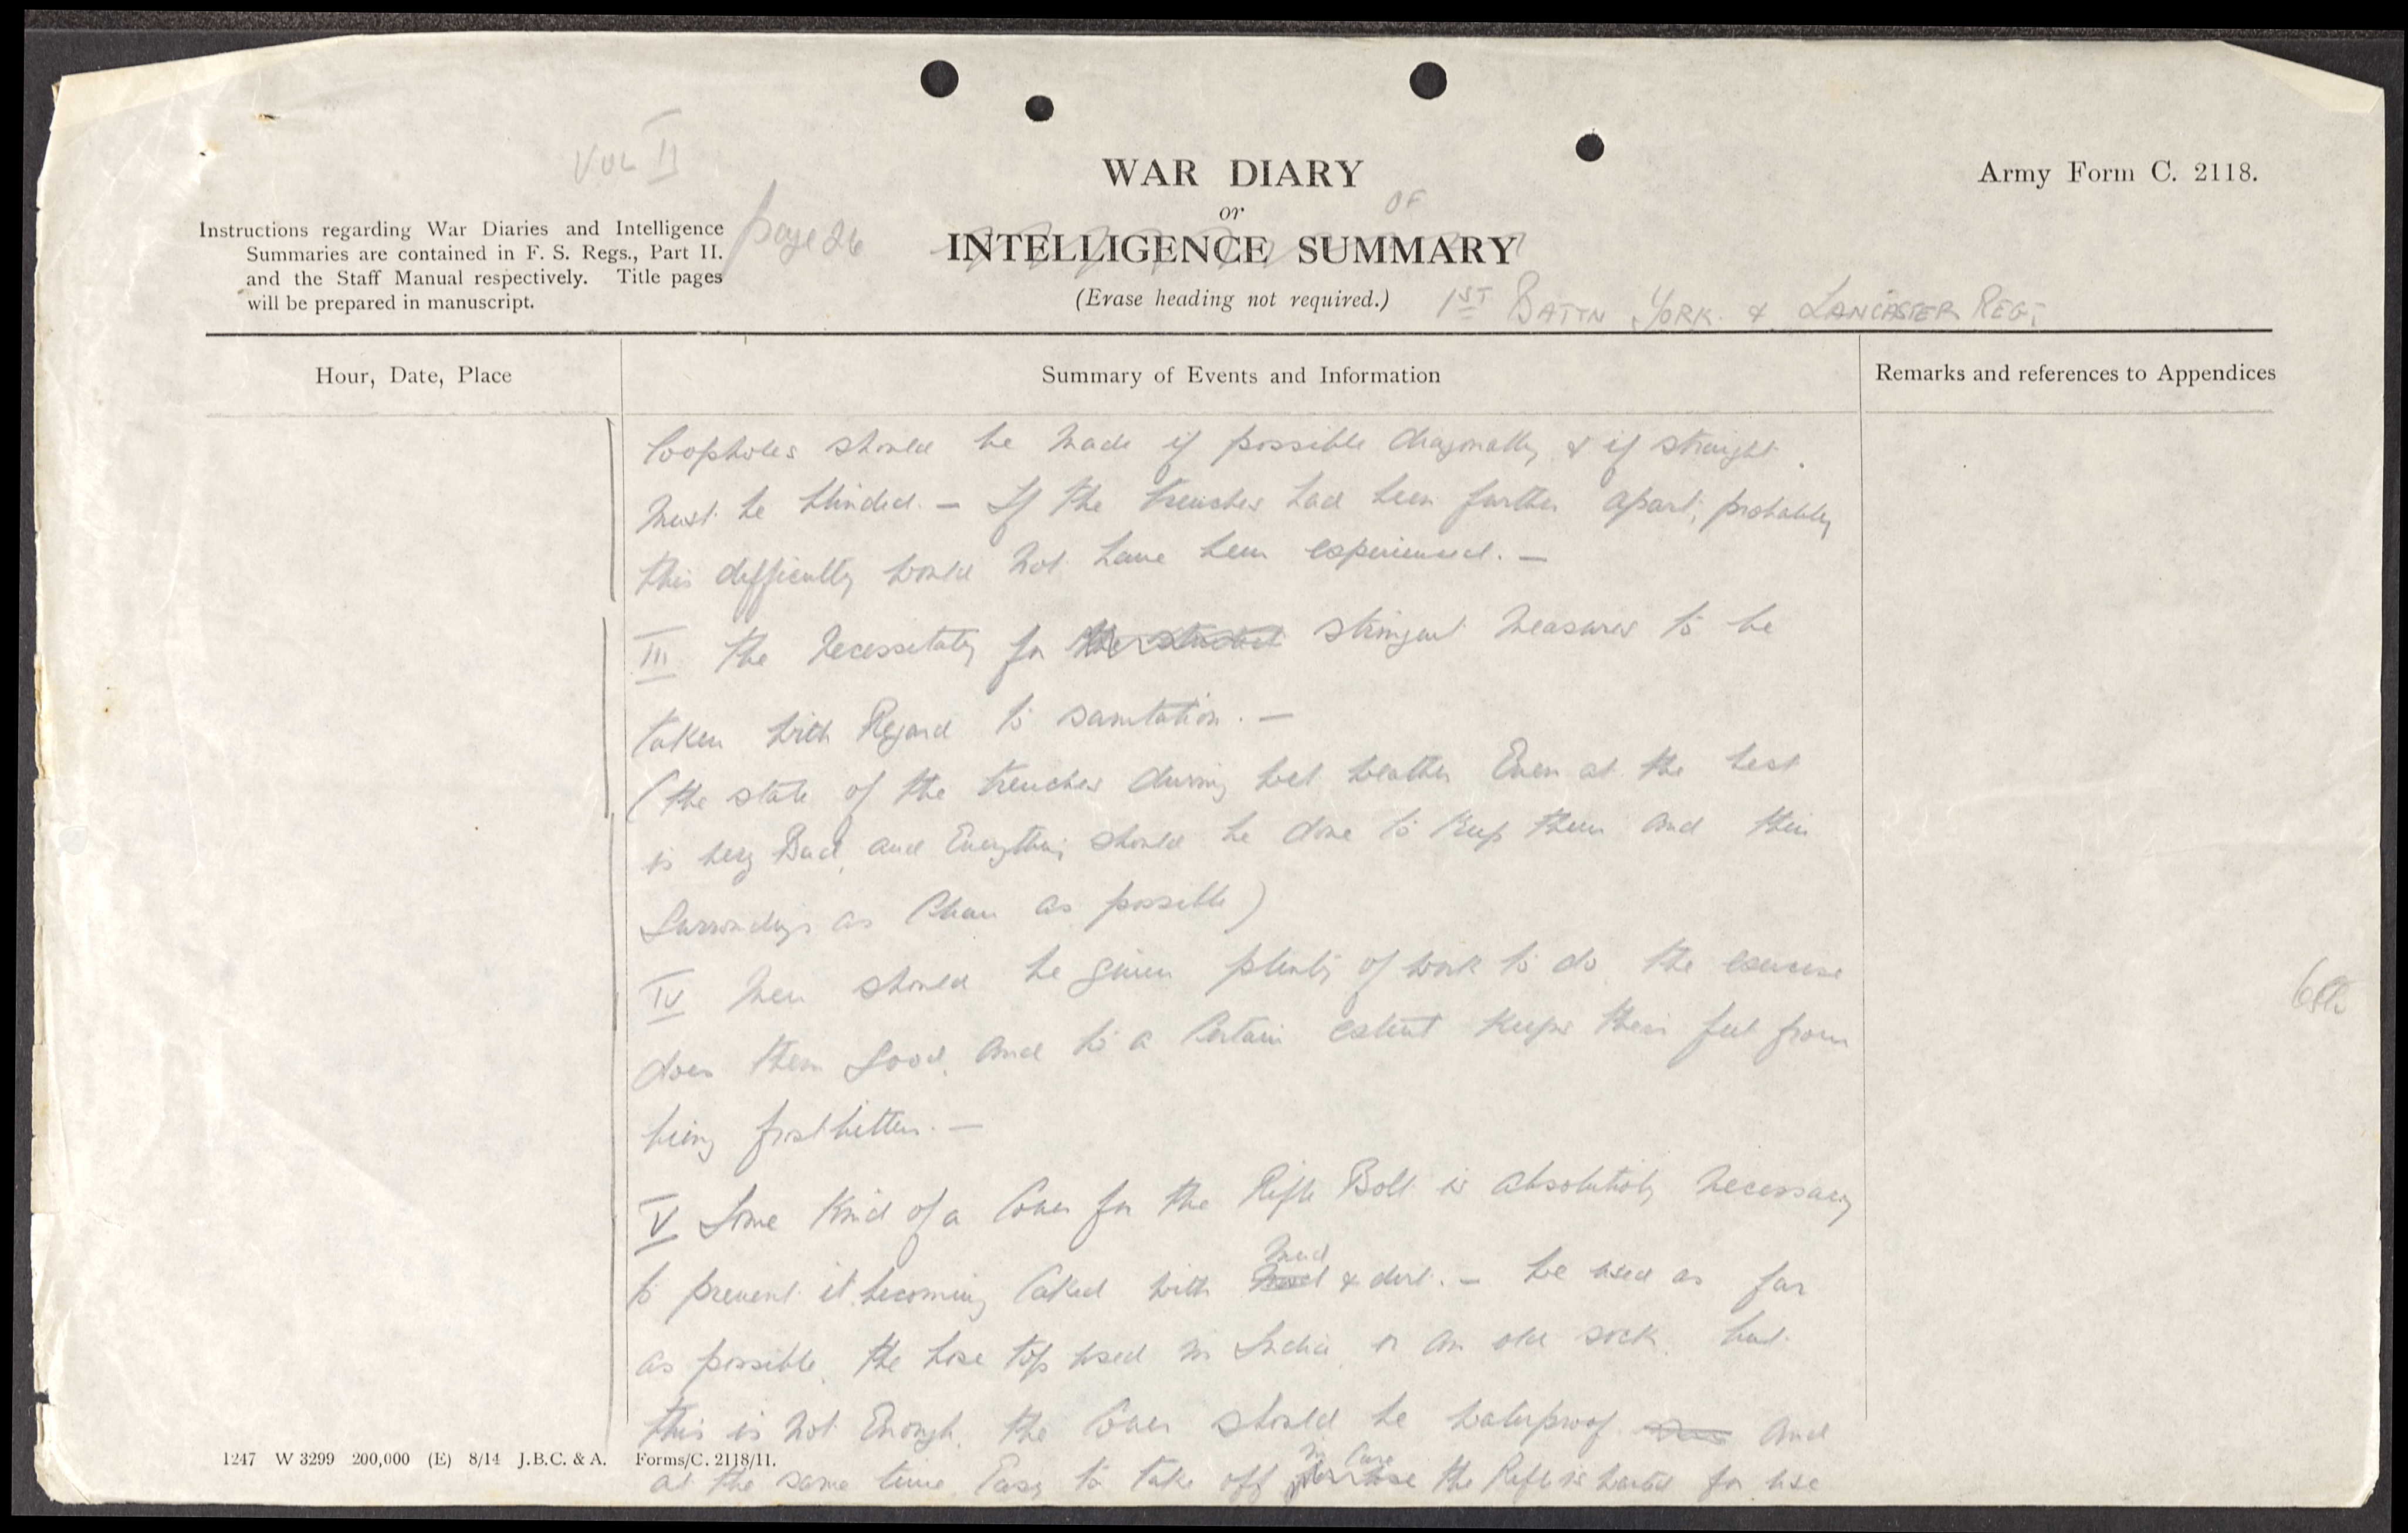 VOL II
page 26
WAR DIARY
or
OF
INTELLIGENCE SUMMARY
(Erase heading not required.)
1ST BATTN YORK & LANCASTER REGT
Army Form C. 2118.
Instructions regarding War Diaries and Intelligence
Summaries are contained in F. S. Regs., Part II.
and the Staff Manual respectively. Title pages
will be prepared in manuscript.
Hour, Date, Place
Summary of Events and Information
Remarks and references to Appendices
loopholes should be made if possible diagonally & if straight.
must be blinded. — If the trenches had been further apart, probably
this difficulty would not have been experienced. —
III The necessitaty for stringent measures to be
taken with Regard to sanitation. —
(the state of the trenches during wet weather Even at the best
is very Bad, and Everything should be done to keep them and their
Surroundings as Clean as possible)
IV Men should be given plenty of work to do, the exercise
does them Good, and to a Certain extent keeps their feet from
being frostbitten. —
V Some Kind of a Cover for the Rifle Bolt is absolutely necessary
to prevent it becoming Caked with mud & dirt. — We used as far
as possible, the hose top used in India, or an old sock, but
this is not Enough, the Cover should be waterproof and
at the same time Easy to take off in Case the Rifle is wanted for use
1247 W 3299 200,000 (E) 8/14 J.B.C. & A. Forms/C. 2118/11.